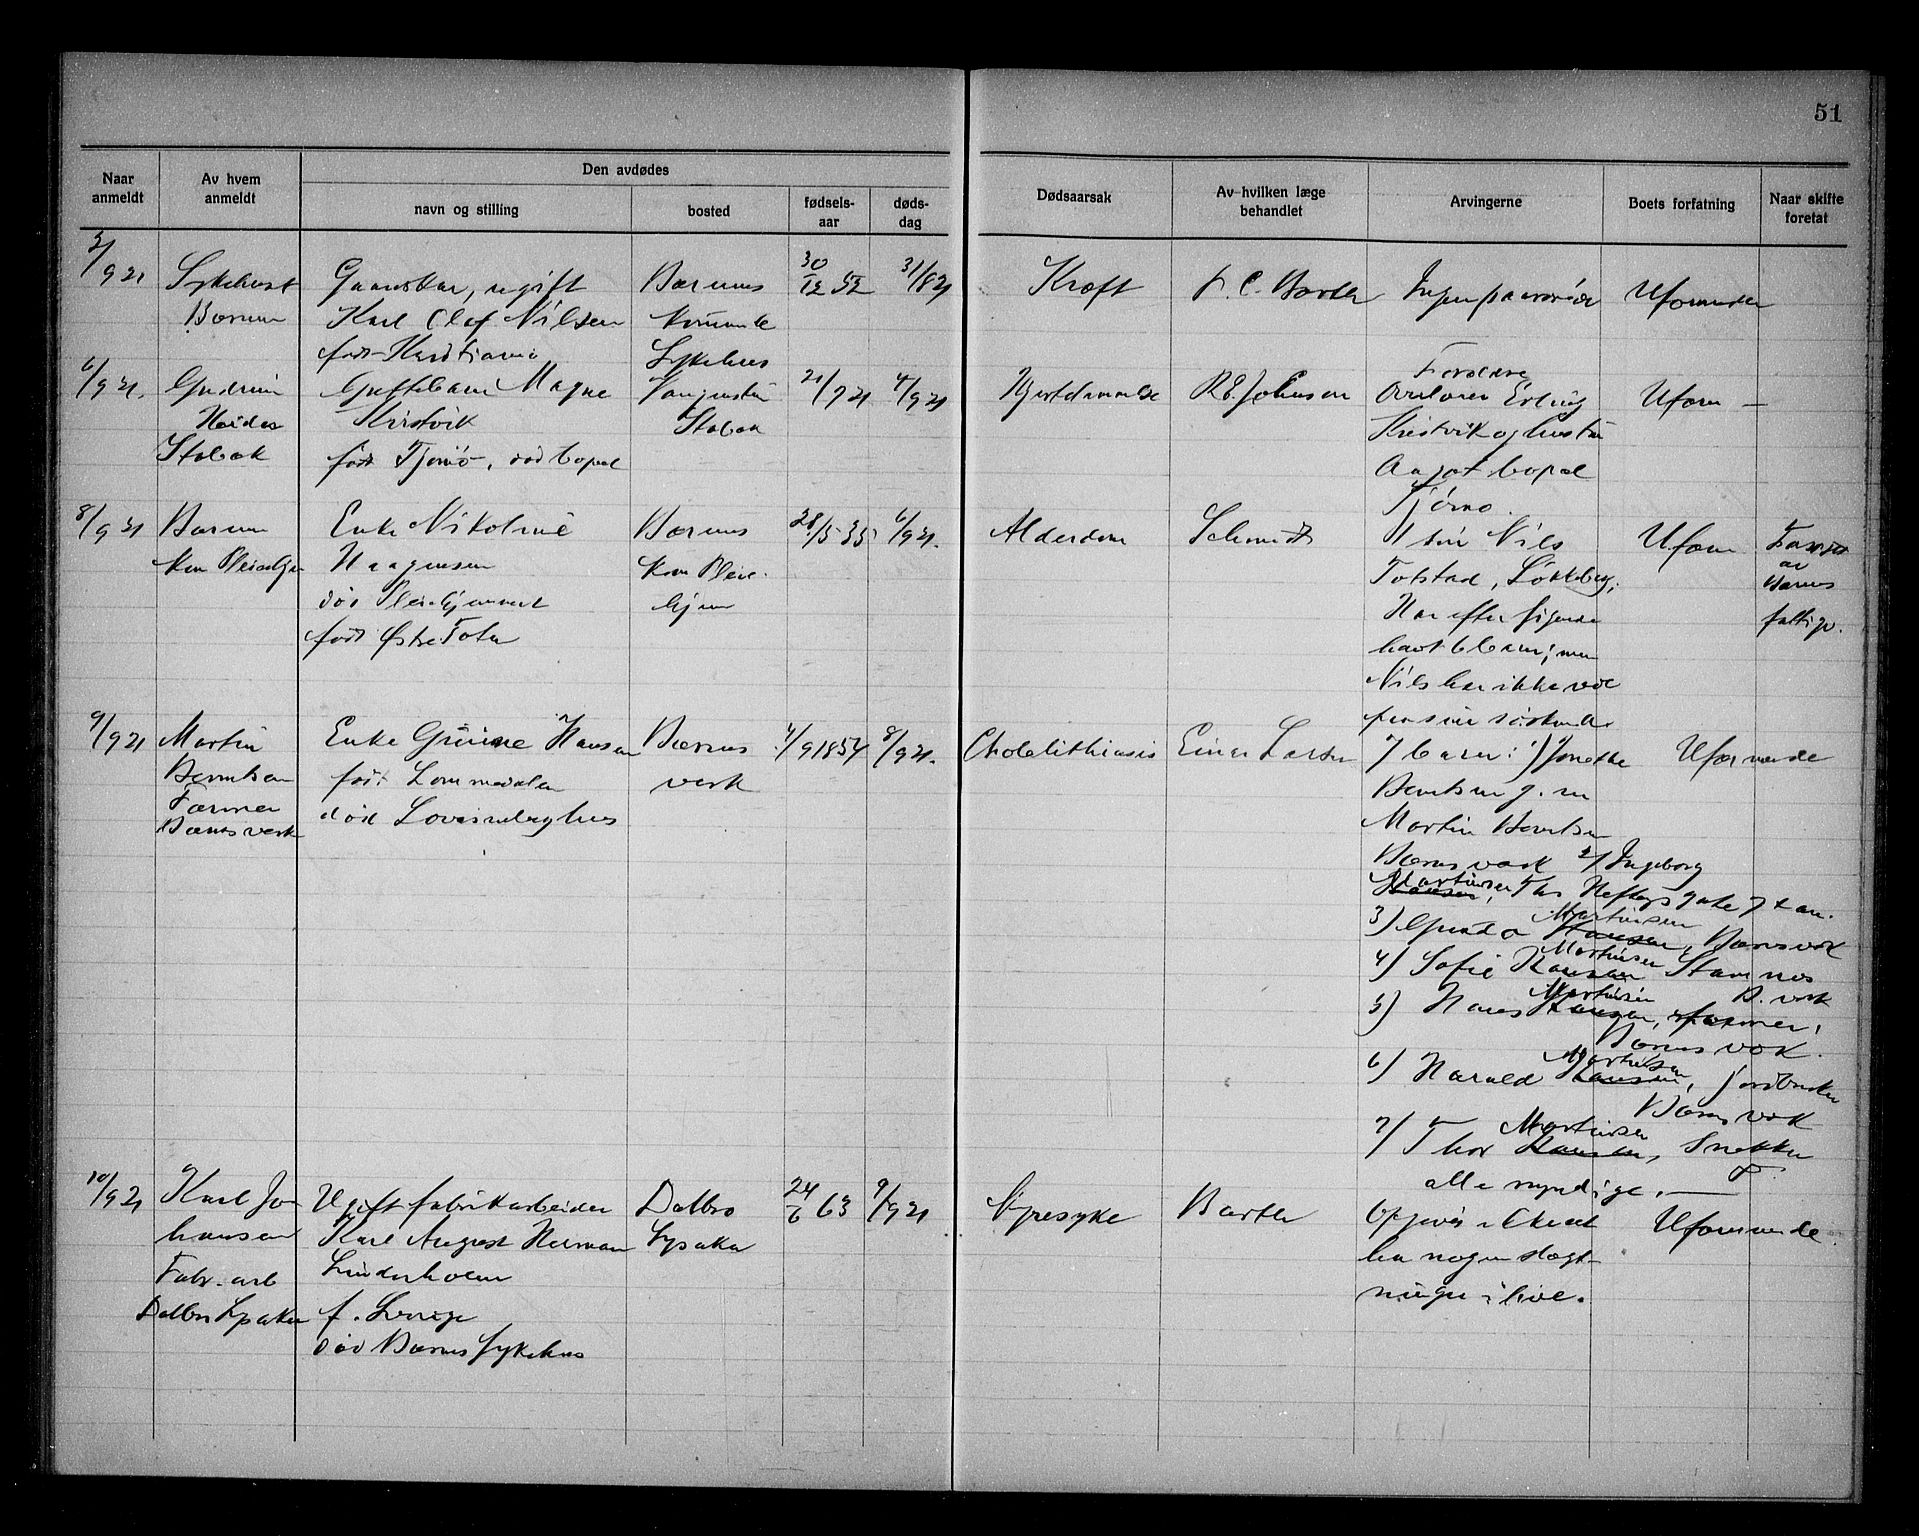 51
Naar anmeldt
Av hvem anmeldt
Den avdødes
navn og stilling
bosted
fødsels-aar
døds-dag
Dødsaarsak
Av hvilken læge behandlet
Arvingerne
Boets forfatning
Naar skifte foretat
3/9 21
Sykehuset
Bærum
ugift
Karl Olaf Nilsen
født Kristiania
Bærums
Sykehus
30/12 52
31/8 21
Kræft
Barth
Ingen
Uformuende
6/9 21.
Gudrun
Stabæk
Guttebarn Magne
Kirstvik
født Tjømø, død bopæl
Stabæk
21/7 21
4/9 21
R. Johnsen
Forældre
Erling
Kristvik og hustru
Aagot bopæl
Tjømø.
Uform —
8/9 21
Bærum
Kom Pleiehjem
Enke Nikoline
Haagensen
død Pleiehjemmet
født Østre Toten
Bærums
Kom Pleie-
hjem
28/5 35
6/9 21.
Alderdom
Schmidt
1 søn Nils
Totstad, Løkkeberg,
Har efter sigende
havt 6 barn, men
Nils har ikke vite
om sine søskende.
Uform
av
Bærums
fattigv.
9/9 21
Martin
Berntsen
Farmer
Bærums verk
Enke Hansen
født Lommedalen
død Lovisenberghus
Bærums
verk
4/9 1854
8/9 21.
Cholelithiasis
Einar Larsen
7 barn: 1) Jonette
Berntsen g. m
Martin Berntsen
Bærums verk 2/ Ingeborg
Martinsen, Ths Heftyes gate 7 Kra.
3) Gunda Martinsen Hansen, Bærums verk
4) Sofie Martinsen Hansen Stamnes
B. verk
5) Hans Martinsen Hansen, farmer,
Bærums verk.
6) Harald Martinsen Hansen, jordbruker
Bærums verk
7) Thor Martinsen Hansen, Snekker
alle myndige. —
Uformuende
10/9 21
Karl Jo-
hansen
Fabr. arb
Dalbo Lysaker
Ugift fabrikarbeider
Karl August Herman
Linderholm
f. Sverige
død Bærums Sykehus
Dalbo
Lysaker
24/6 63
9/9 21
Nyresyke
Barth
Opgives ikke at
ha nogen slegt-
ninger i live.
Uformuende